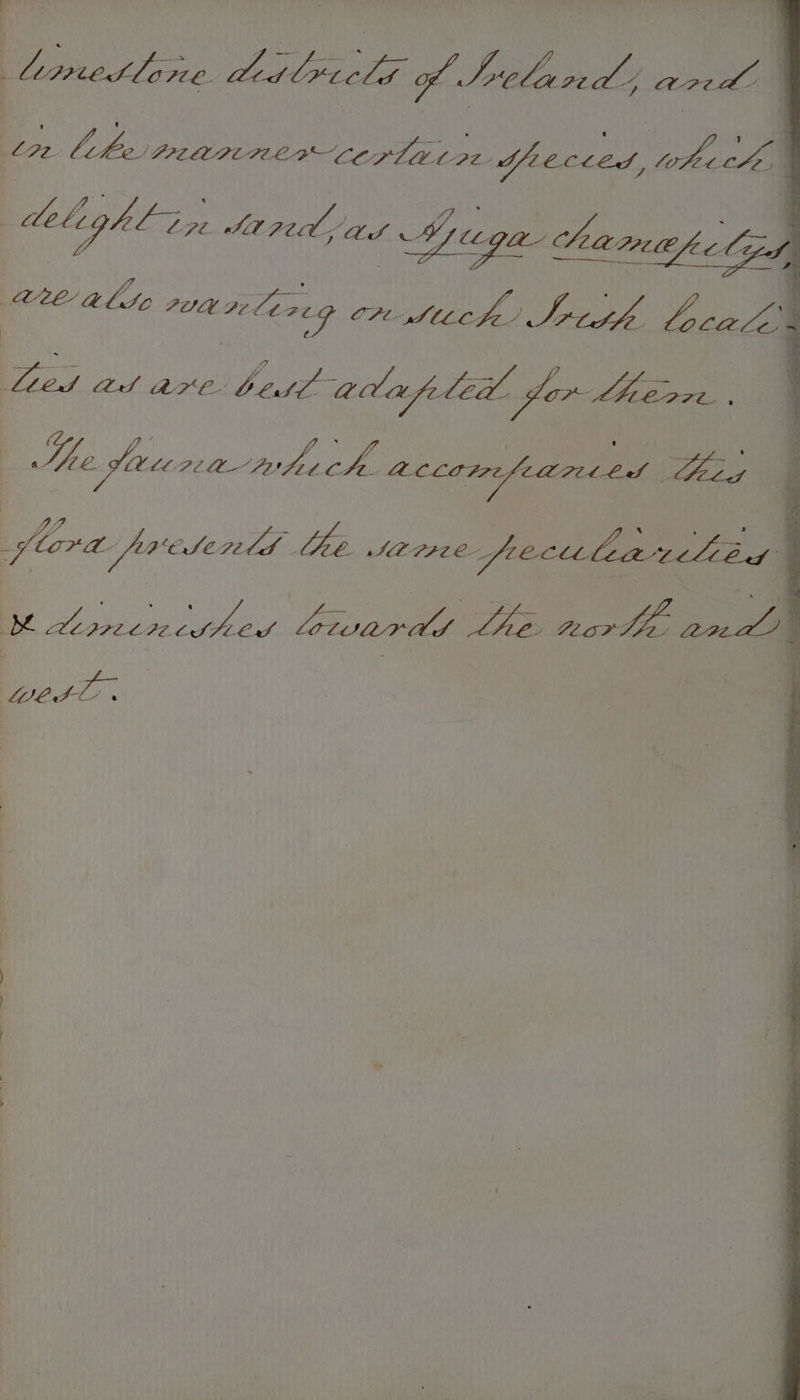 limestone districts of Ireland, and
in like manner certain species, which
delight in sand, as Ajuga chamæpitys,
are also wanting on such Irish locali-
ties as are best adapted for them.
The fauna which accompanies this
flora presents the same peculiarities
& diminishes towards the north and
west.